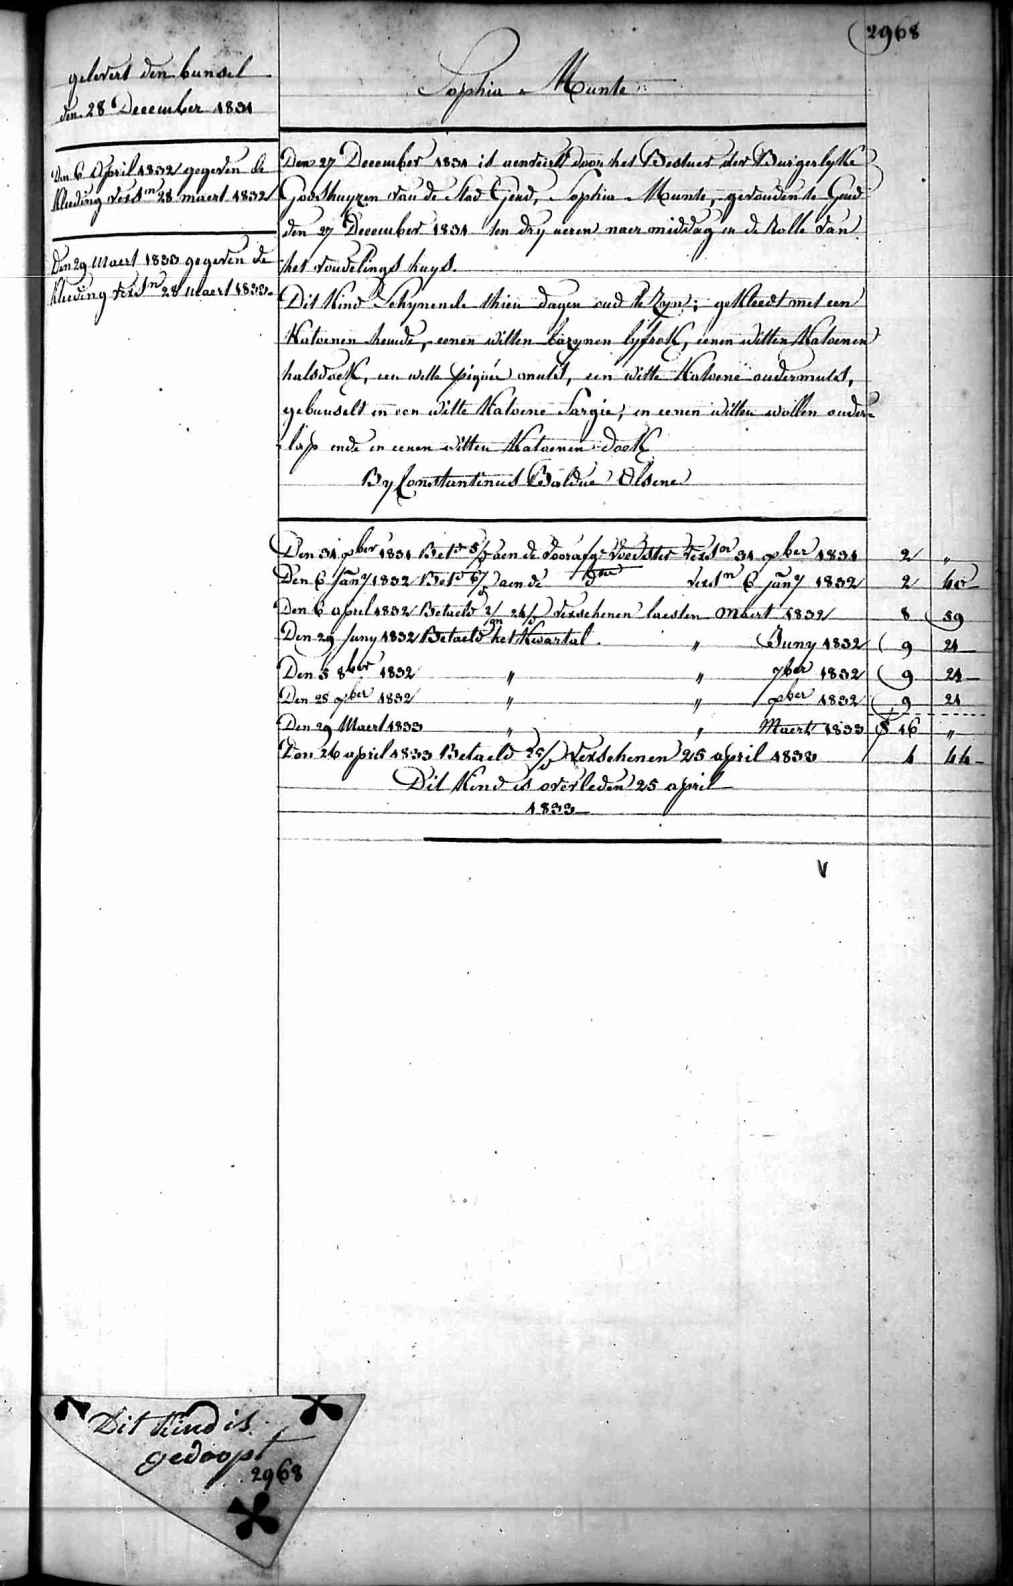 2968
gelevert den bunsel
den 28 December 1831
Den 6 April 1832 gegeven de
kleeding vers.n 28 maert 1832
Den 29 Maert 1833 gegeven de
kleeding vers.n 28 Maert 1833.
Sophia Munte
Den 27 December 1831 is aenveerd door het Bestuer der Burgerlyke
Godshuyzen van de Stad Gend, Sophia Munte, gevonden te Gend
den 27 December 1831 ten dry ueren naer middag in de Rolle van
het vondelings huys.
Dit Kind Schynende thien dagen oud te Zyn; gekleedt met een
Katoenen hemde, eenen witten bazynen lyfrok, eenen witten Katoenen
halsdoek, een witte piquée muts, een witte Katoene ondermuts,
gebunselt in een witte Katoene Sargie, in eenen witten wollen onder=
lap ende in eenen witten Katoenen doek
By Constantinus Baldué Olsene
Den 31 xber 1831 Bet.d 5/ aen de voorafg. voedster vers.n 31 xber 1831 2 "
Den 6 Jany 1832 Bet.d 6/ aen de d.ne vers.n 6 jany 1832 2 40
Den 6 april 1832 Betaeld 2/m 24/d verschenen laesten Maert 1832 8 59
Den 29 Juny 1832 Betaeld het Kwartal " Juny 1832 9 24
Den 5 8ber 1832 " " 7ber 1832 9 24
Den 28 xber 1832 " " xber 1832 9 24
Den 29 Maert 1833 " " Maert 1833 16 "
Den 26 april 1833 Betaeld 25/d verschenen 25 april 1833 4 44
Dit Kind is overleden 25 april
1833
V
Dit Kind is
gedoopt
2968